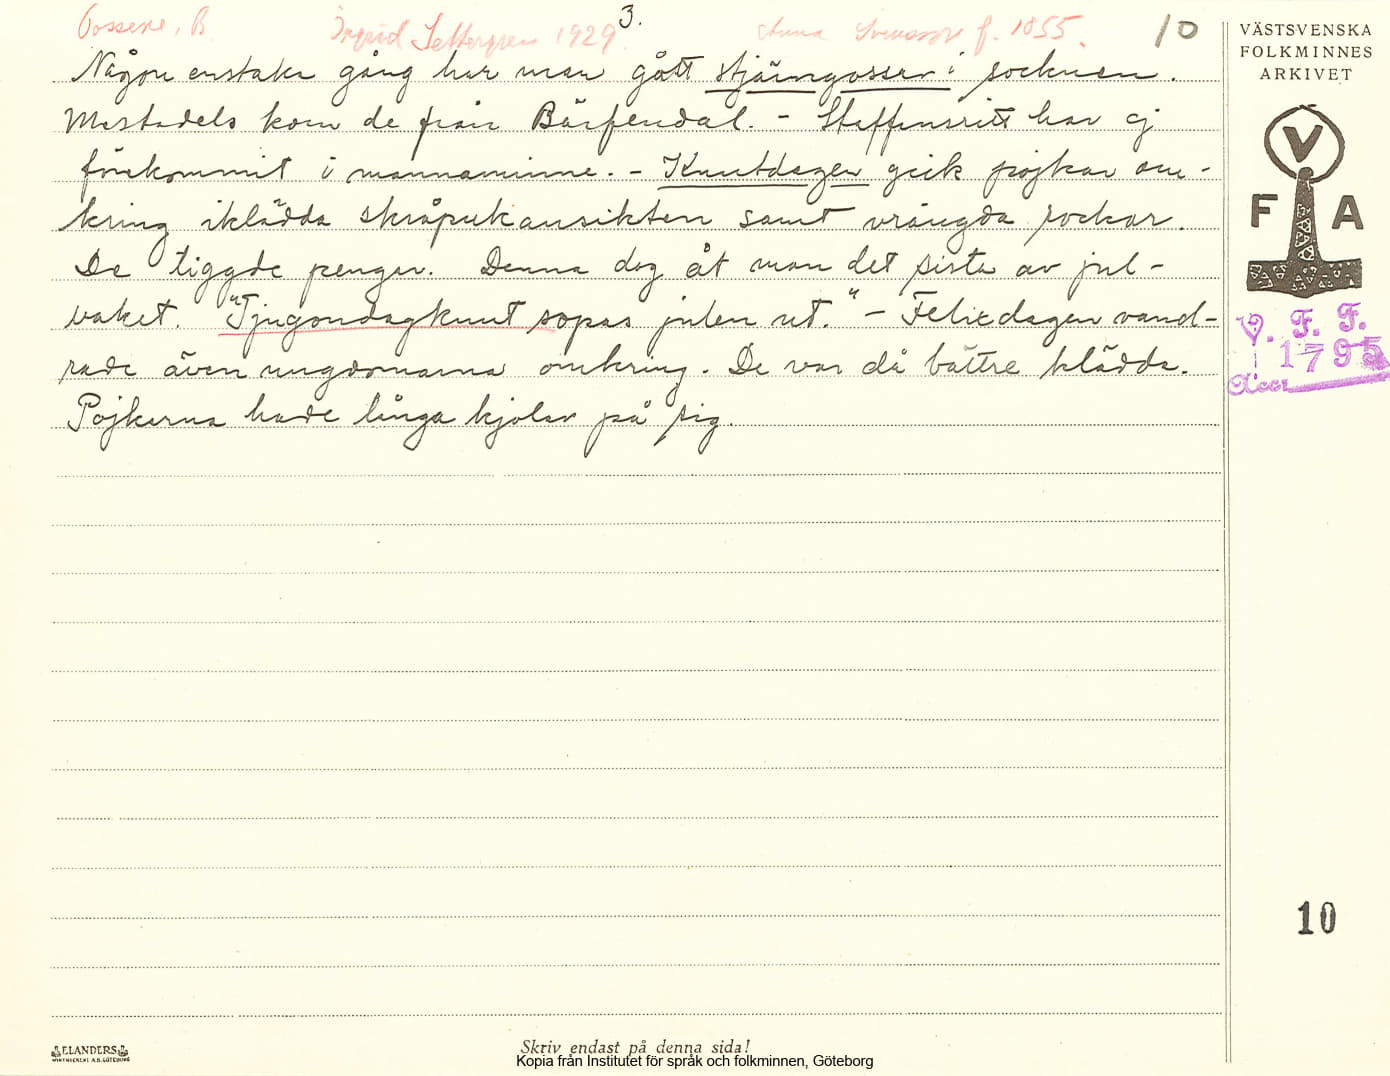 3.
Tossene, B Ingrid Settergren 1929 Anna Svensson f. 1855. 10
Någon enstaka gång har man gått stjärngosser i socknen.
Mestadels kom de från Bärfendal. - Staffansritt har ej
förekommit i mannaminne. - Knutdagen gick pojkar om-
kring iklädda skråpukansikten samt vrängda rockar.
De tiggde pengar. Denna dag åt man det sista av jul-
baket. "Tjugondagknut sopas julen ut." - Felixdagen vand-
rade även ungdomarna omkring. De var då bättre klädda.
Pojkarna hade långa kjolar på sig.
VÄSTSVENSKA
FOLKMINNES
ARKIVET
V
F A
V. F. F.
1795
Acc.
10
ELANDERS
Skriv endast på denna sida!
Kopia från Institutet för språk och folkminnen, Göteborg